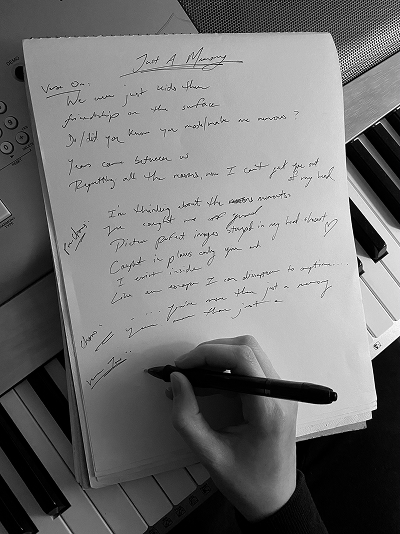 Just A Memory
Verse One:
We were just kids then
friendship on the surface
Do/did you know you made/make me nervous?
Years came between us
Regretting all the reasons, now I can't get you out
of my head
I'm thinking about the moments
You caught me
Picture perfect images stuck in my head & heart ♡
Caught in places only you
I exist inside
Like an escape I can disappear to anytime...
Chorus:
you're more than just a memory
more than just a